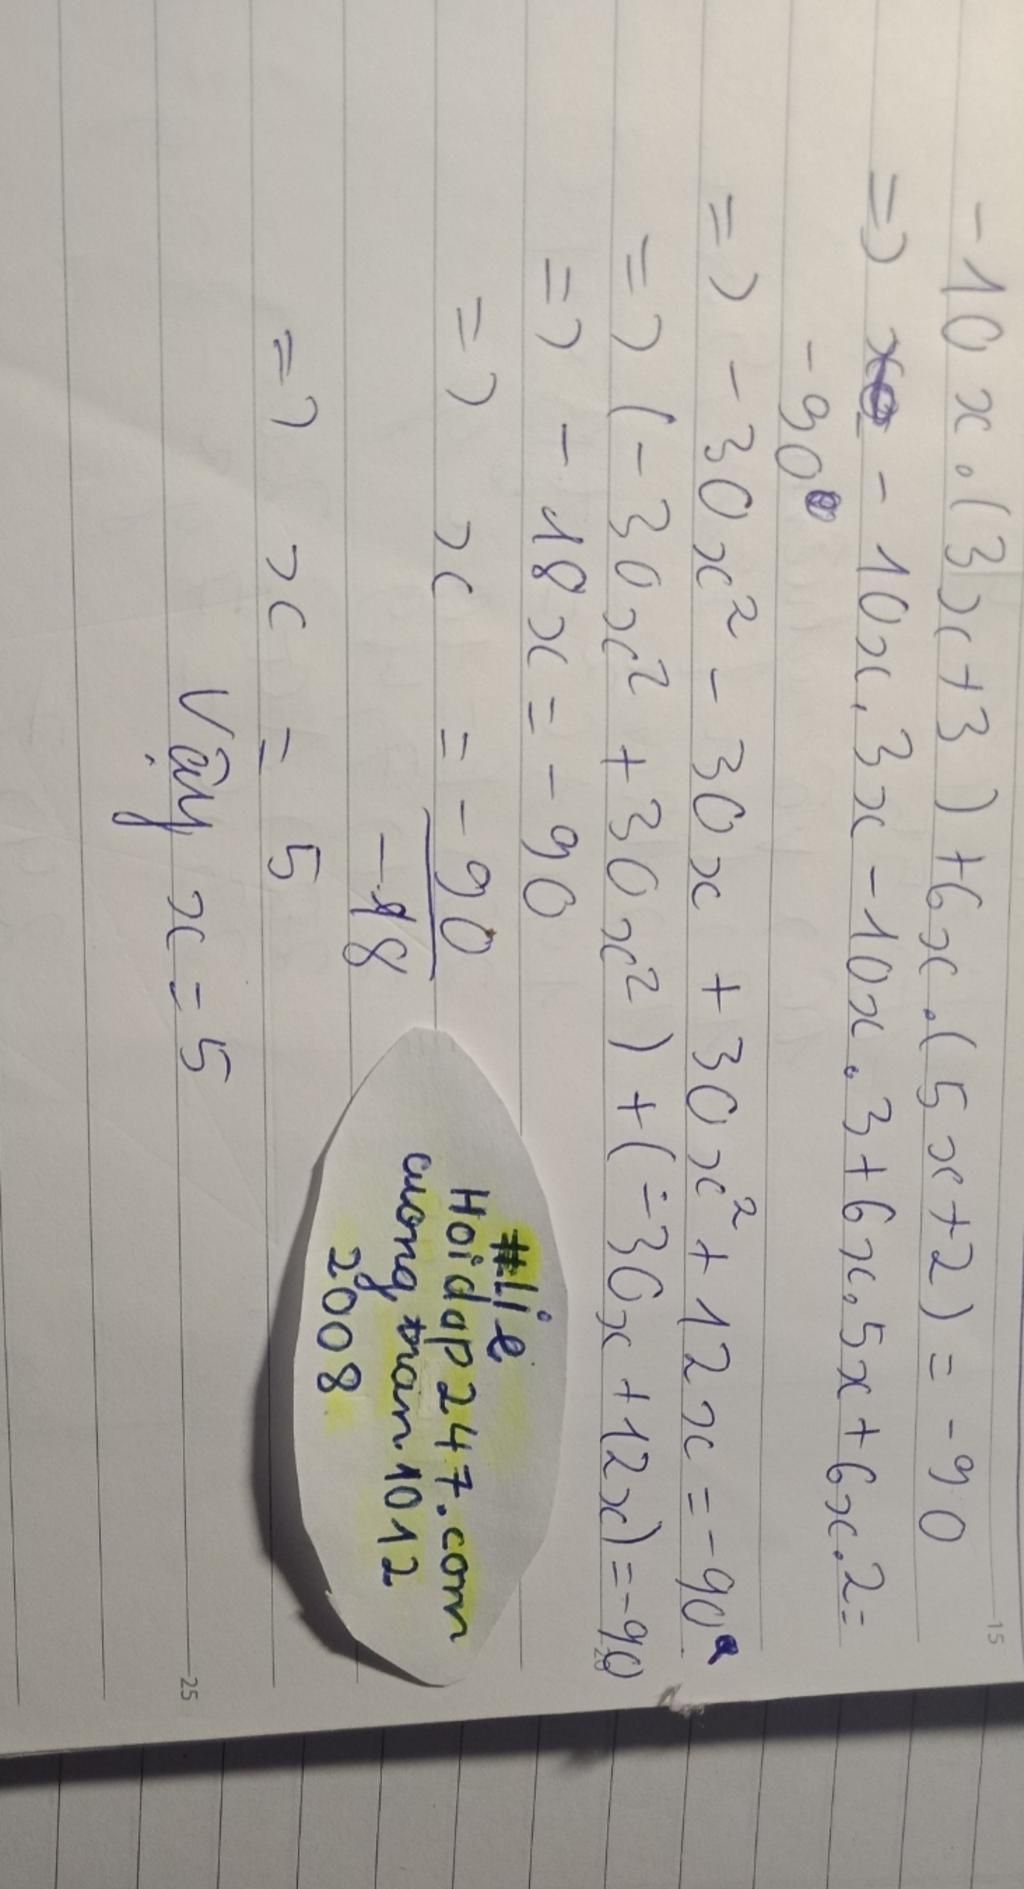 -10x.(3x+3)+6x.(5x+2)=-90
=> -10x.3x-10x.3+6x.5x+6x.2=
-90
=> -30x²-30x+30x²+12x=-90
=> (-30x²+30x²)+(-30x+12x)=-90
=> -18x=-90
=> x = -90
-18
=> x = 5
Vậy x=5
#Lie
Hoidap247.com
cuongman1012
2008
15
20
25